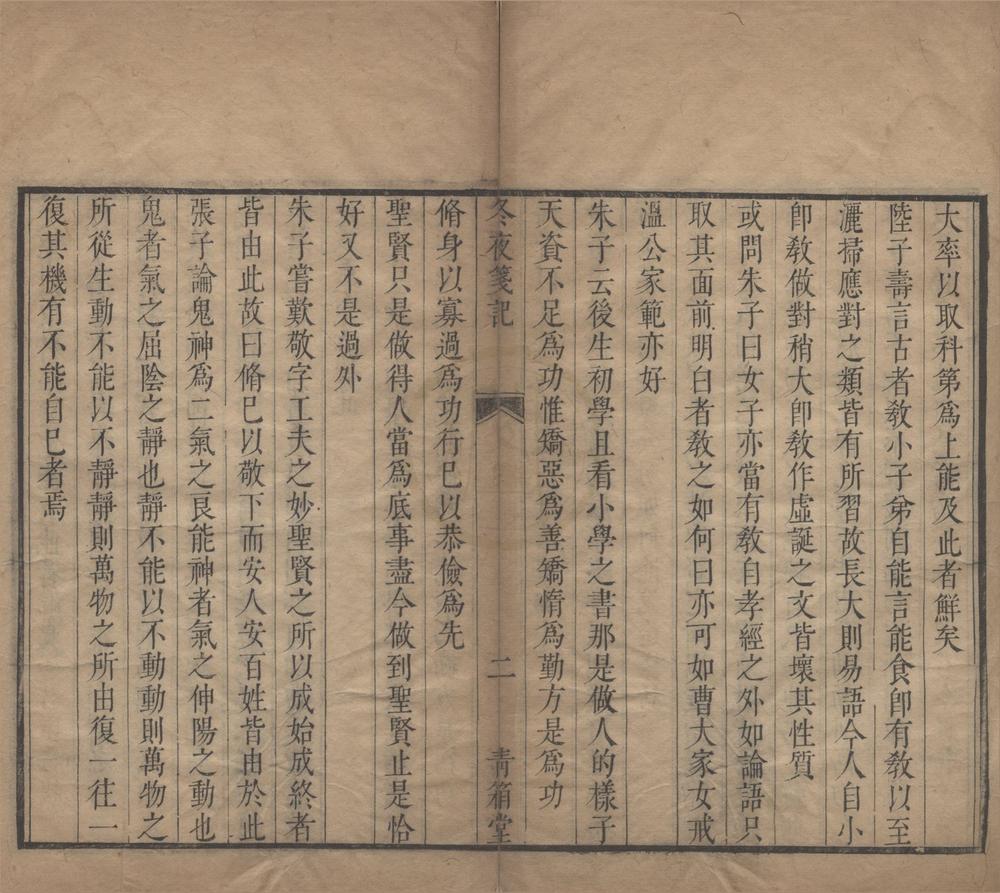 大率以取科第爲上能及此者鮮矣
陸子壽言古者敎小子弟自能言能食卽有敎以至
灑掃應對之類皆有所習故長大則易語今人自小
卽敎做對稍大卽敎作虛誕之文皆壞其性質
或問朱子曰女子亦當有敎自孝經之外如論語只
取其面前明白者敎之如何曰亦可如曹大家女戒
溫公家範亦好
朱子云後生初學且看小學之書那是做人的樣子
天資不足爲功惟矯惡爲善矯惰爲勤方是爲功
冬夜箋記
二
青箱堂
脩身以寡過爲功行已以恭儉爲先
聖賢只是做得人當爲底事盡今做到聖賢止是恰
好又不是過外
朱子嘗歎敬字工夫之妙聖賢之所以成始成終者
皆由此故曰脩已以敬下而安人安百姓皆由於此
張子論鬼神爲二氣之良能神者氣之伸陽之動也
鬼者氣之屈陰之靜也靜不能以不動動則萬物之
所從生動不能以不靜靜則萬物之所由復一往一
復其機有不能自已者焉